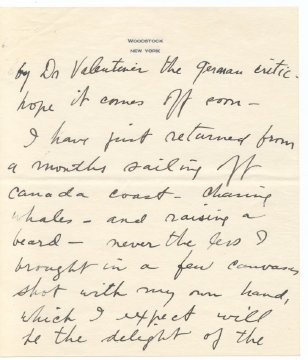 WOODSTOCK
NEW YORK
by Dr Valentiner the german critic -
hope it comes off soon -
I have just returned from
a months sailing off
Canada coast - chasing
whales - and raising a
beard - never the less I
brought in a few canvases
shot with my own hand,
which I expect will
be the delight of the